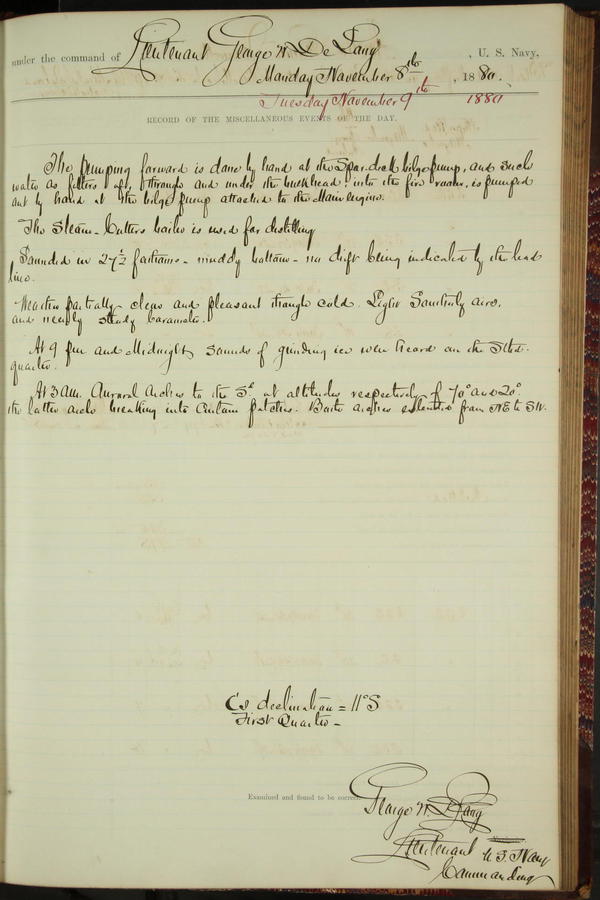 under the command of Lieutenant George W. De Long, U. S. Navy,
Monday November 8th, 1880.
Tuesday November 9th 1880
RECORD OF THE MISCELLANEOUS EVENTS OF THE DAY.
The pumping forward is done by hand at the Spar-deck bilge pump, and such
water as filters aft, through and under the bulkhead, into the fire room, is pumped
out by hand at the bilge pump attached to the Main engine.
The Steam-Cutters boiler is used for distilling
Sounded in 27½ fathoms - muddy bottom - no drift being indicated by the lead
line.
Weather partially clear and pleasant though cold. Light Southerly airs,
and nearly steady barometer.
At 9 P.M. and Midnight, sounds of grinding ice were heard on the Stbd.
quarter.
At 3 A.M. Auroral Arches to the Sd at altitudes respectively of 70° and 20°.
the latter arch breaking into Curtain patches. Both arches extended from NE to SW.
C's declination = 11°S
First Quarter -
Examined and found to be correct.
George W. De Long
Lieutenant U.S. Navy
Commanding